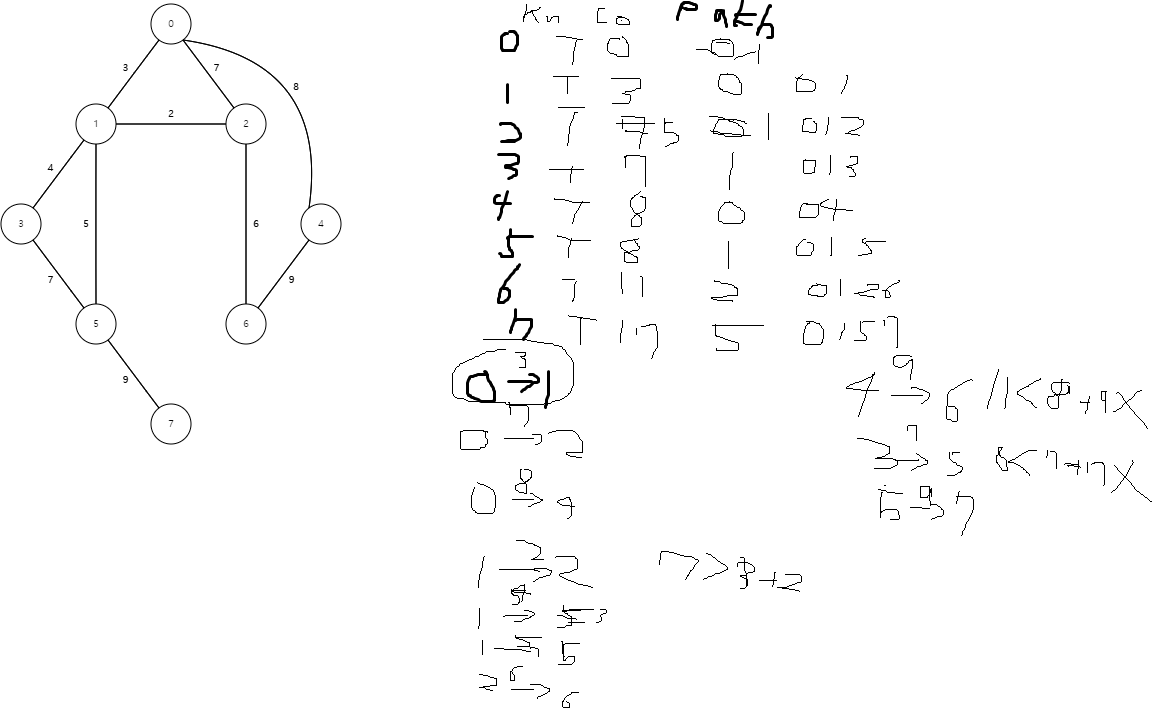 0
3
7
8
1
2
2
4
5
6
3
4
7
9
5
6
9
7
Kn Co Path
0 T 0 -1
1 T 3 0 01
2 T 5 1 012
3 T 7 1 013
4 T 8 0 04
5 T 8 1 015
6 T 11 2 0126
7 T 17 5 0157
0 →3 1
0 →7 2
0 →8 4
1 →2 2 7>3+2
1 →4 3
1 →5 5
2 →6 6
4 →9 6 11<8+9X
3 →7 5 8<7+7X
5 →9 7